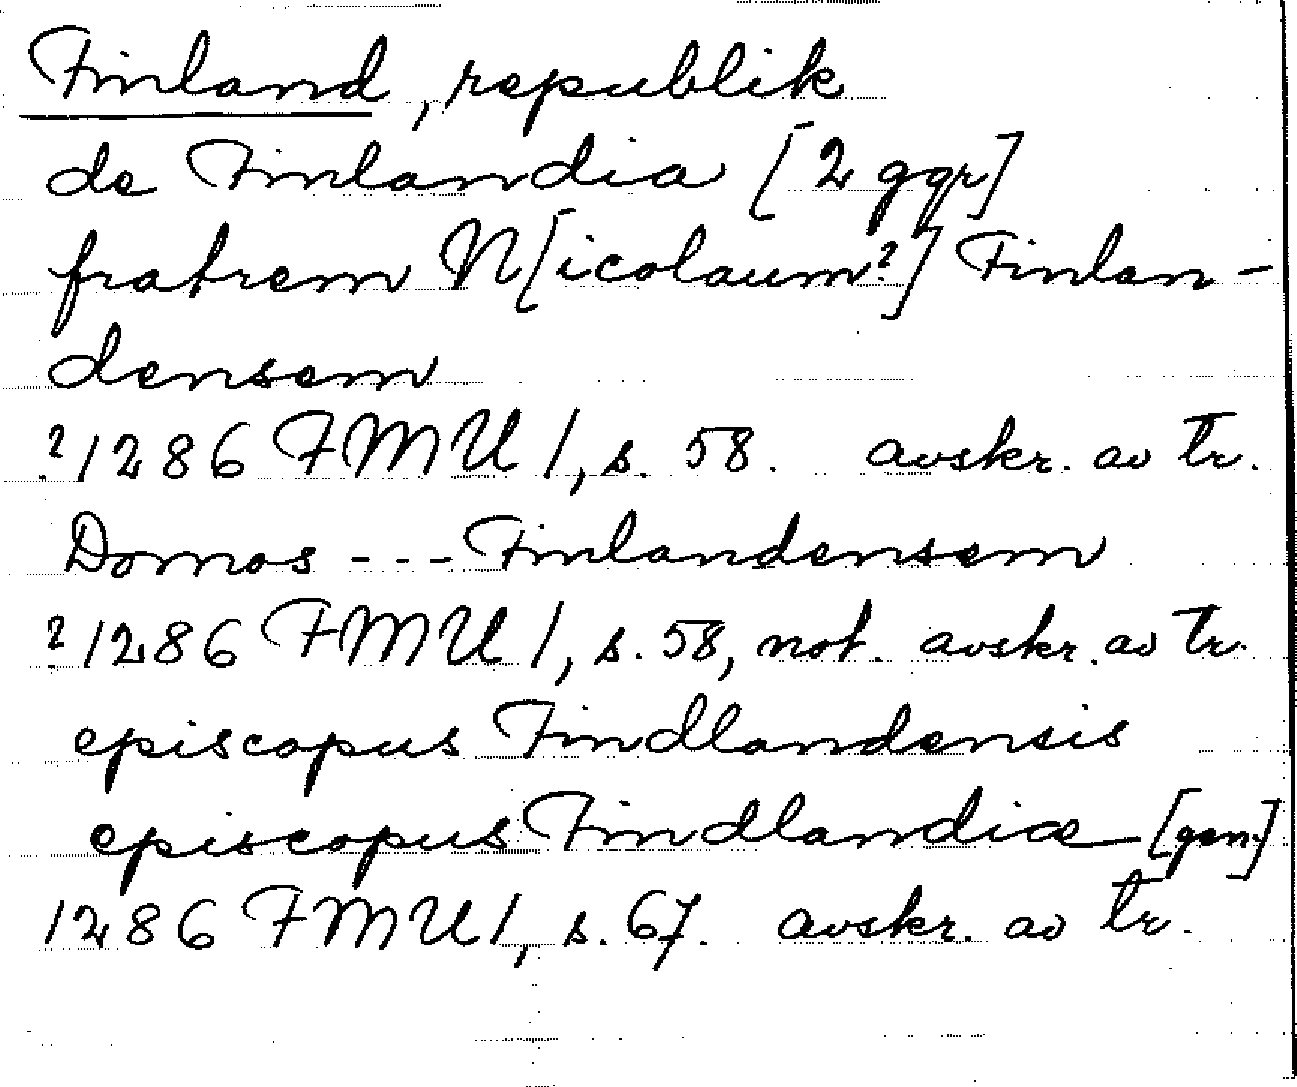 Finland, republik
de Finlandia [2 ggr]
fratrem N[icolaum?] Finlan-
densem
?1286 FMU 1, s. 58. avskr. av tr.
Domos --- Finlandensem
?1286 FMU 1, s. 58, not. avskr. av tr.
episcopus Findlandensis
episcopus Findlandiæ [gen.]
1286 FMU 1, s. 67. avskr. av tr.